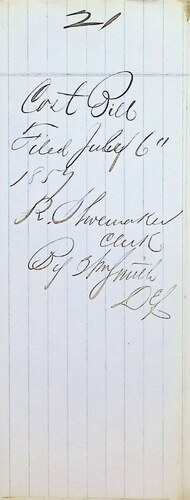 21
Cost Bill
Filed July 6"
1857
R. Shoemaker
Clerk
By Wm Smith
DC